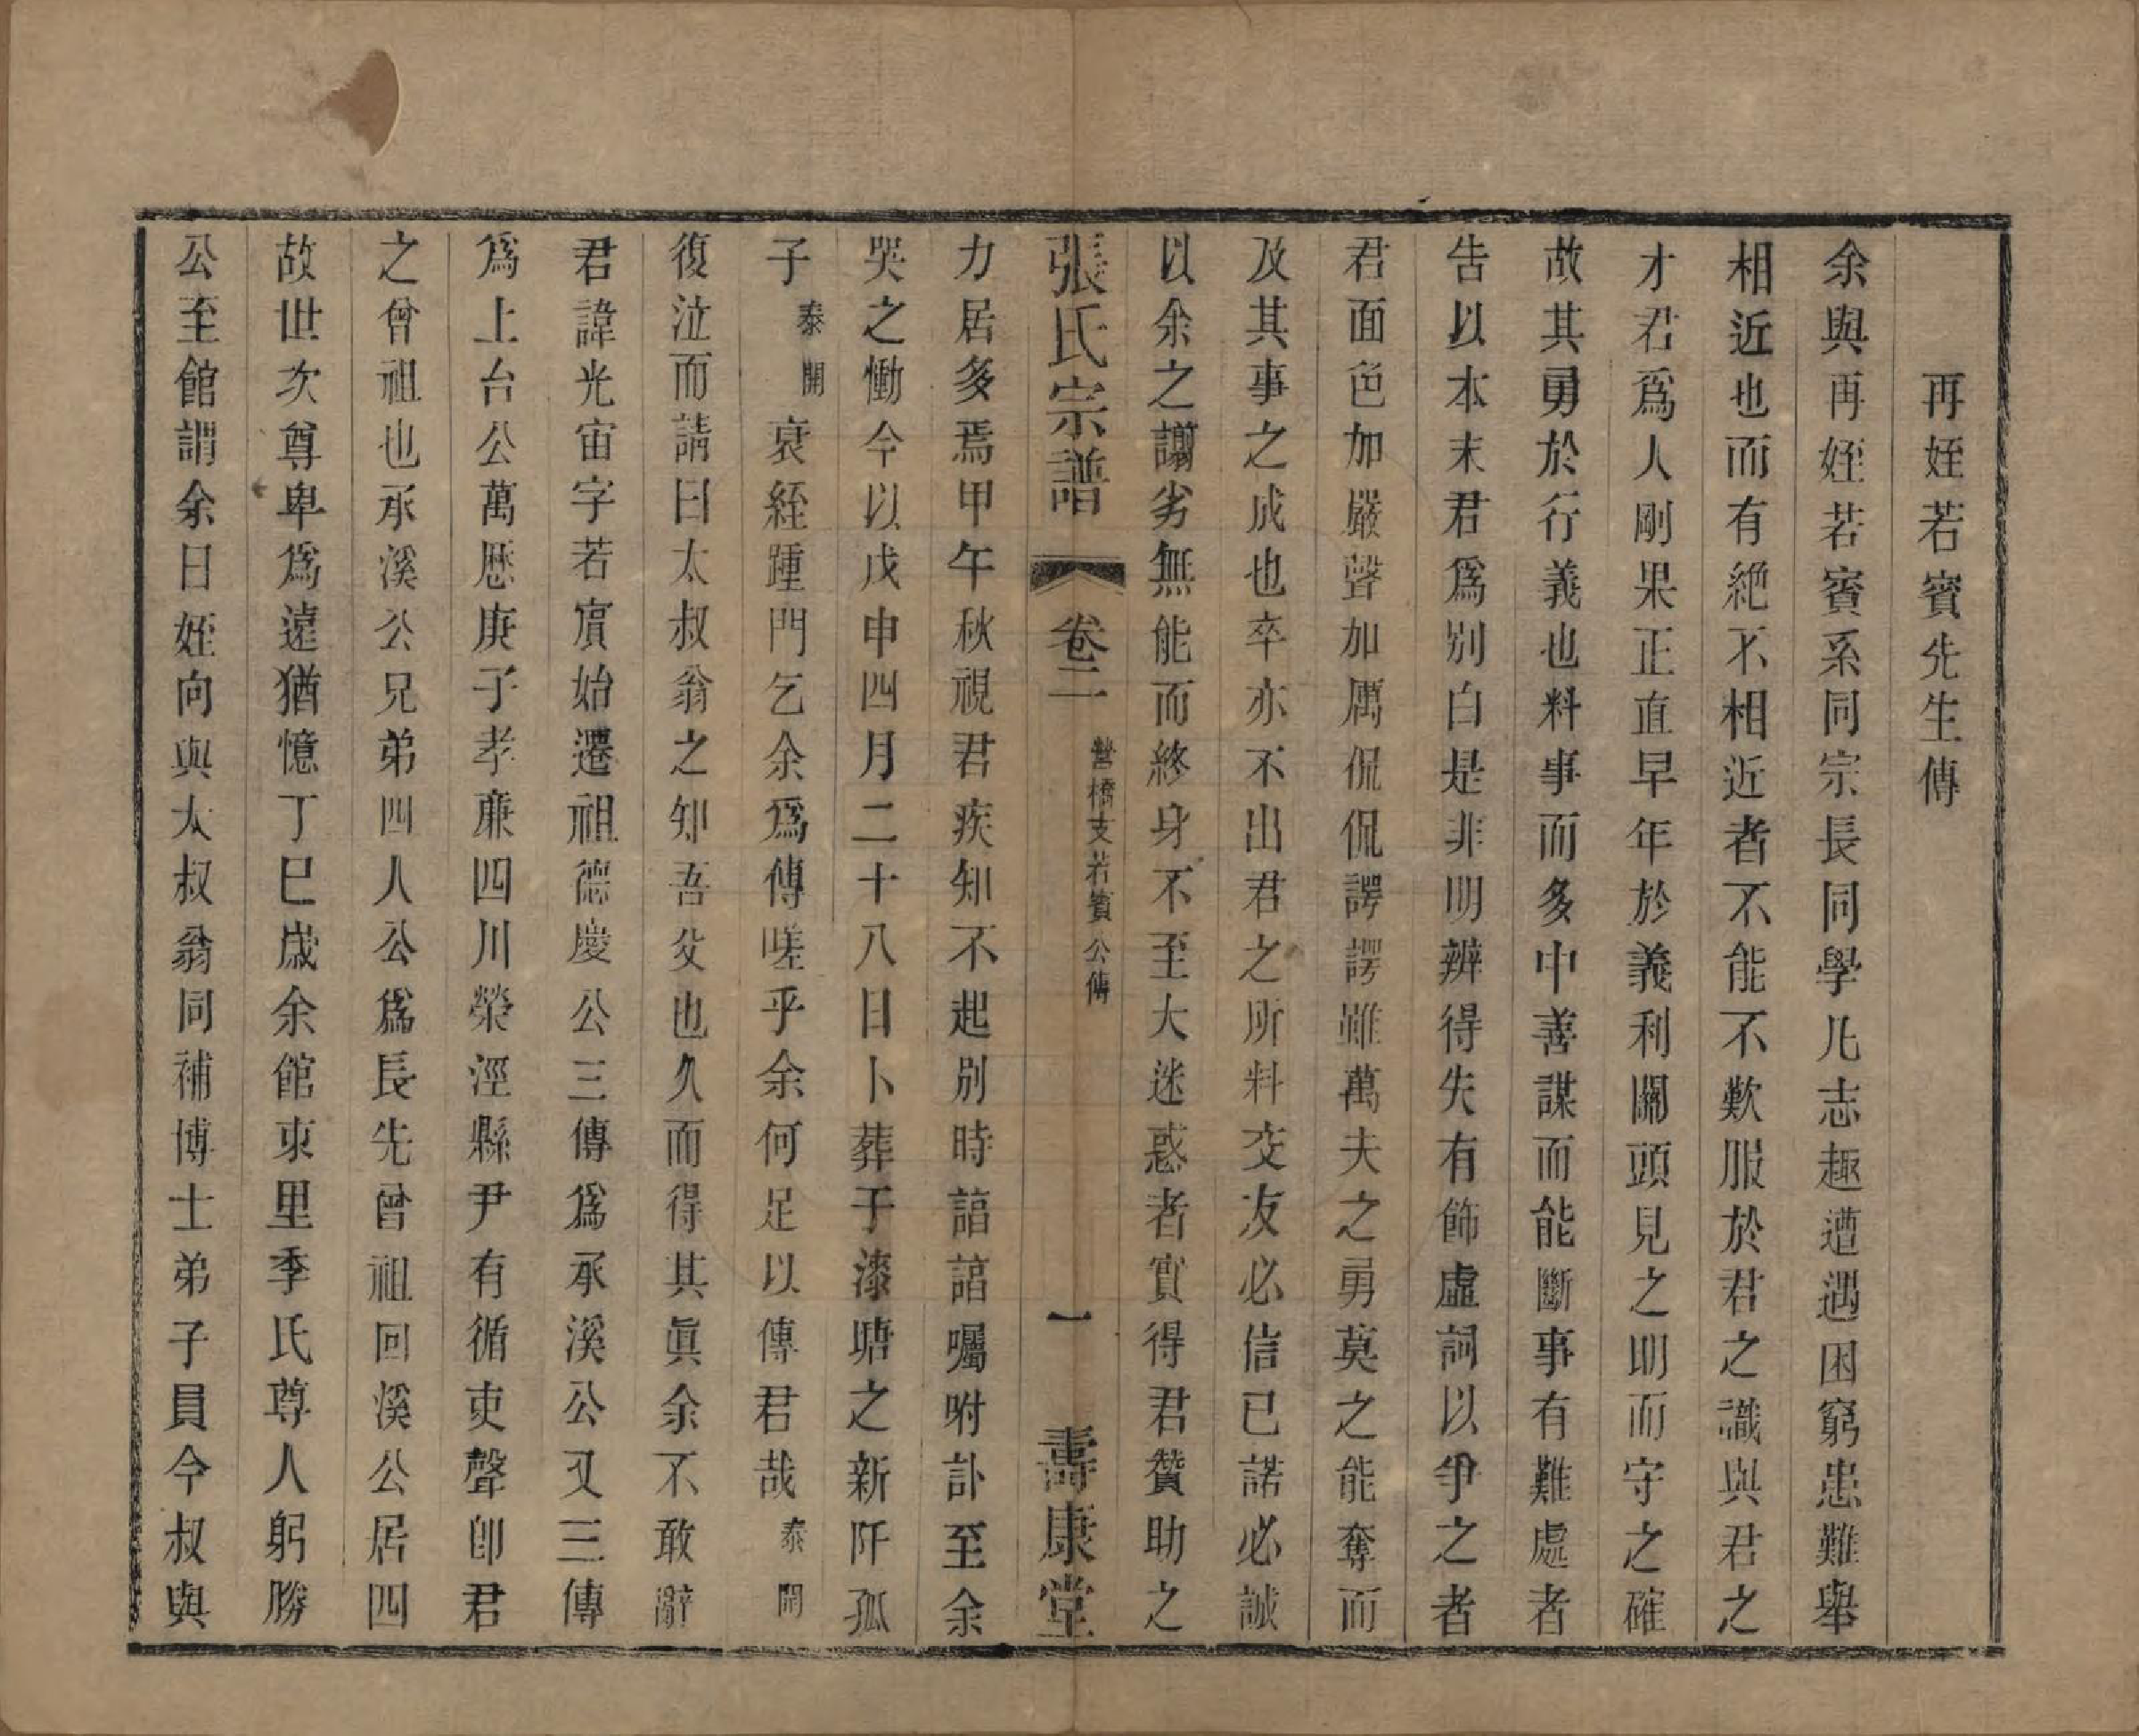 再姪若賓先生傳
余與再姪若賓系同宗長同學凡志趣遭遇困窮患難舉
相近也而有絕不相近者不能不歎服於君之識與君之
才君爲人剛果正直早年於義利關頭見之明而守之確
故其勇於行義也料事而多中善謀而能斷事有難處者
告以本末君爲別白是非明辨得失有飾虛詞以爭之者
君面色加嚴聲加厲侃侃諤諤雖萬夫之勇莫之能奪而
及其事之成也卒亦不出君之所料交友必信已諾必誠
以余之譾劣無能而終身不至大迷惑者實得君贊助之
張氏宗譜 卷二 營橋支若賓公傳 一 壽康堂
力居多焉甲午秋視君疾知不起別時諄諄囑咐訃至余
哭之慟今以戊申四月二十八日卜葬于漆塘之新阡孤
子泰開衰絰踵門乞余爲傳嗟乎余何足以傳君哉泰開
復泣而請曰太叔翁之知吾父也久而得其眞余不敢辭
君諱光宙字若賓始遷祖德慶公三傳爲承溪公又三傳
爲上台公萬歷庚子孝廉四川榮涇縣尹有循吏聲卽君
之曾祖也承溪公兄弟四人公爲長先曾祖回溪公居四
故世次尊卑爲遠猶憶丁巳歲余館東里季氏尊人躬勝
公至館謂余曰姪向與太叔翁同補博士弟子員今叔與